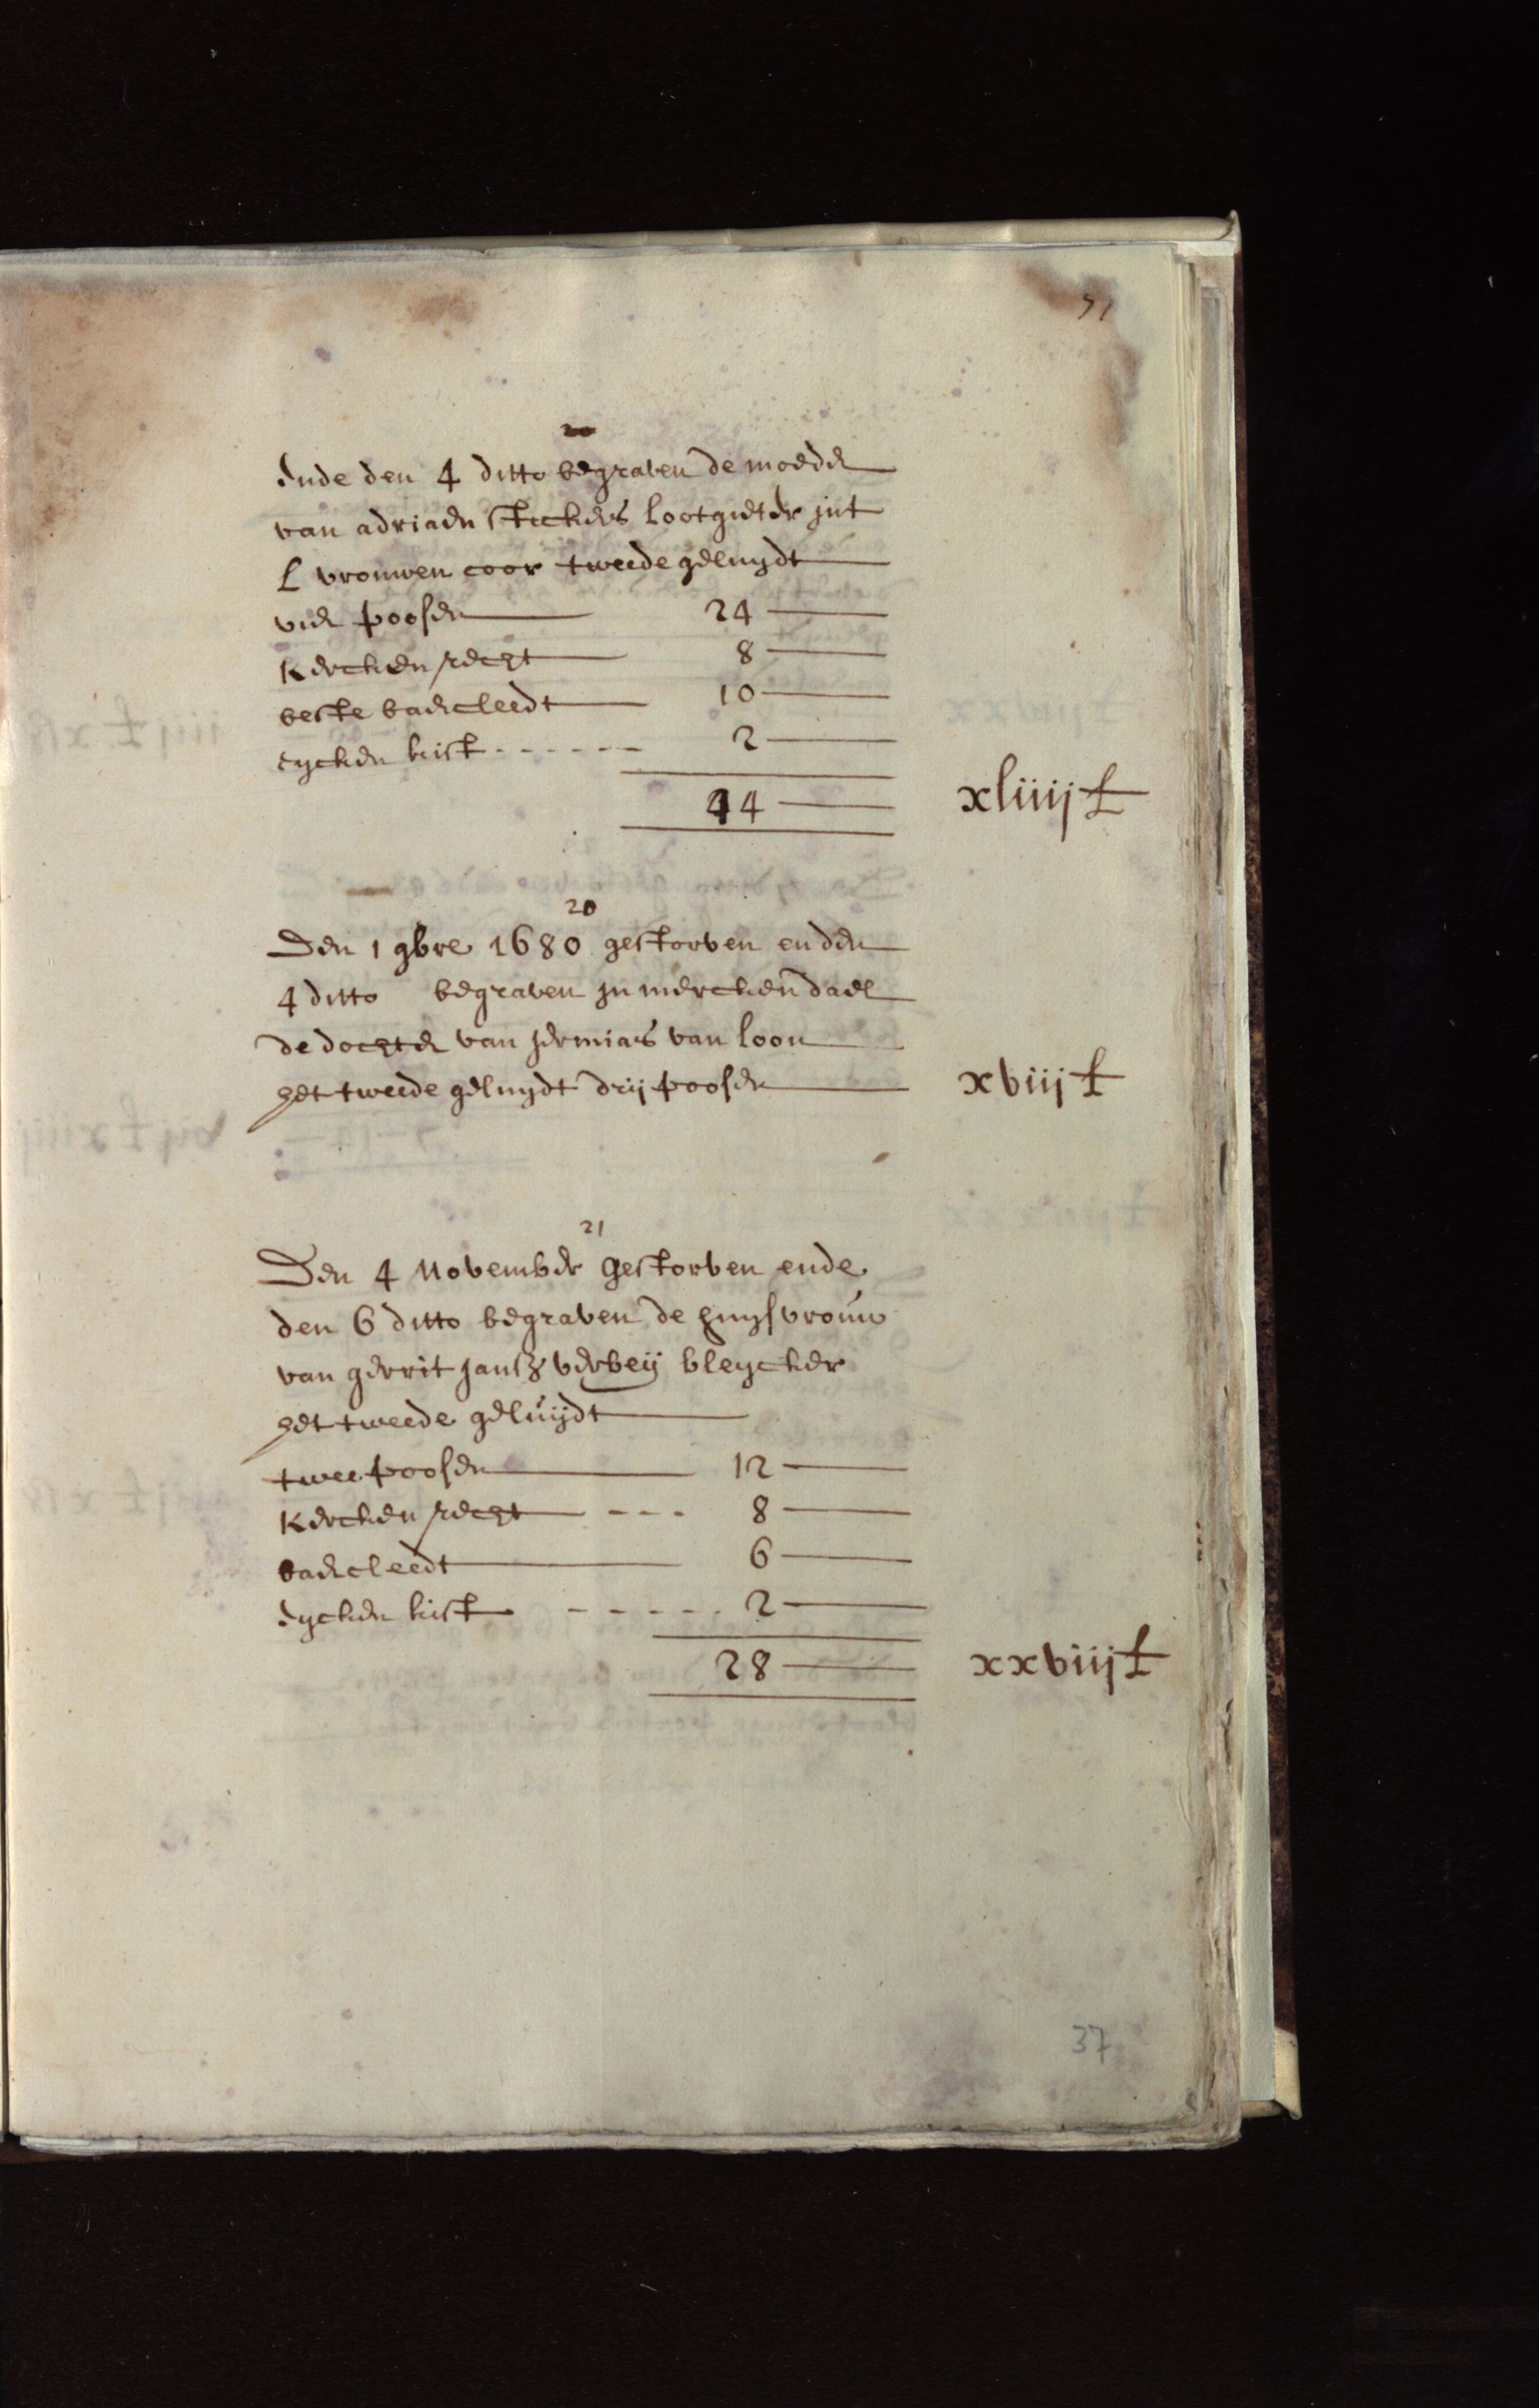 20
Ende den 4 ditto begraven de moeder
van adriaen stickers lootgieter int
L vrouwen coor tweede geluydt
vier poosen 24
kercken recht 8
beste baercleedt 10
eycken kist 2
44 xliiij £
20
Den 1 9bre 1680 gestorven en den
4 ditto begraven in merckendael
de dochter van jermias van loon
het tweede geluydt drij poosen xviij £
21
Den 4 November gestorven ende
den 6 ditto begraven de huysvrouw
van gerrit jansz verbeij bleycker
het tweede geluijdt
twee poosen 12
kercken recht 8
baercleedt 6
eycken kist 2
28 xxviij £
37